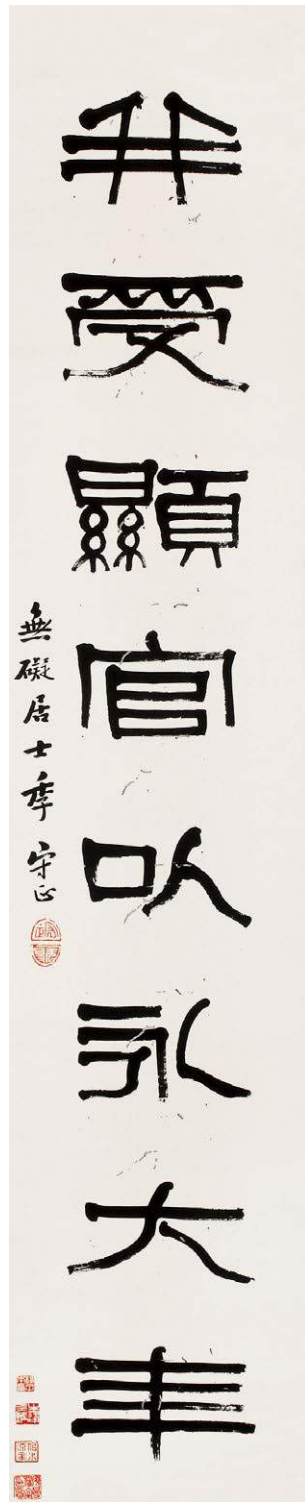 并受顯官以永大年
無礙居士季守正